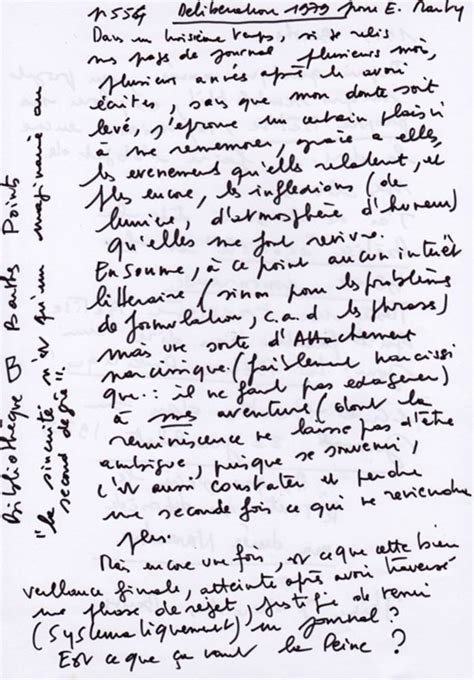 Deliberation 1979 pour E. Marty
Dans un troisième temps, si je relis
mes pages de journal plusieurs mois,
plusieurs années après les avoir
écrites, sans que mon doute soit
levé, j'éprouve un certain plaisir
à me rememorer, grâce à elles,
les evenements qu'elles relatent, et
plus encore, les inflexions (de
lumière, d'atmosphère d'humeur)
qu'elles me font revivre.
En somme, à ce point aucun intérêt
litteraire (sinon pour les problèmes
de formulation, c.a.d les phrases)
mais une sorte d'Attachement
narcissique (faiblement narcissi
que.. il ne faut pas exagerer)
à mes aventures (dont la
reminiscence ne laisse pas d'être
ambigue, puisque se souvenir,
c'est aussi constater et perdre
une seconde fois ce qui ne reviendra
plus.
Mais encore une fois est ce que cette bien
veillance finale, atteinte après avoir traversé
une phase de rejet, justifie de tenir
(systematiquement) un journal?
Est ce que ça vaut la Peine?
Bibliothèque B Barthes Points
"la sincerité n'est qu'un imaginaire au
second degré".